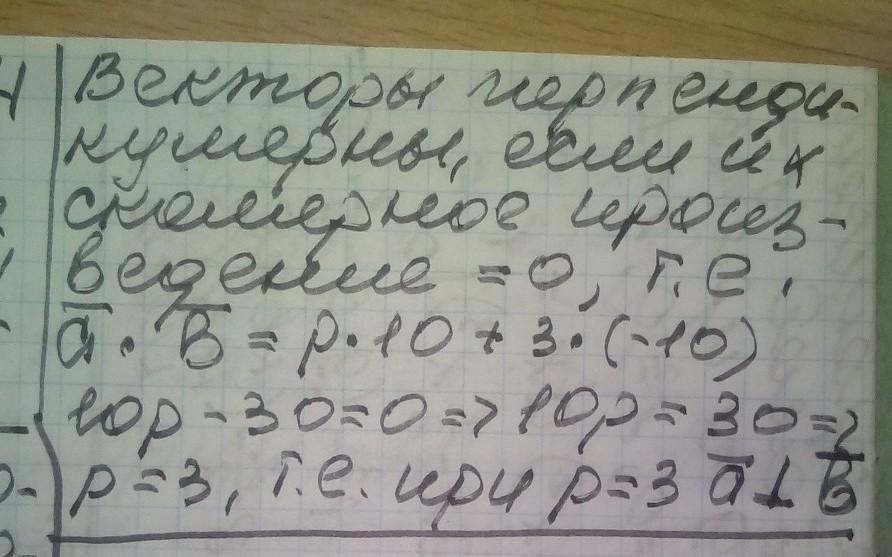 Векторы перпенди-
кулярны, если их
скалярное произ-
ведение = 0, т.е.
a̅ · b̅ = p·10 + 3·(-10)
10p - 30 = 0 => 10p = 30 =>
p = 3, т.е. при p = 3 a̅ ⊥ b̅